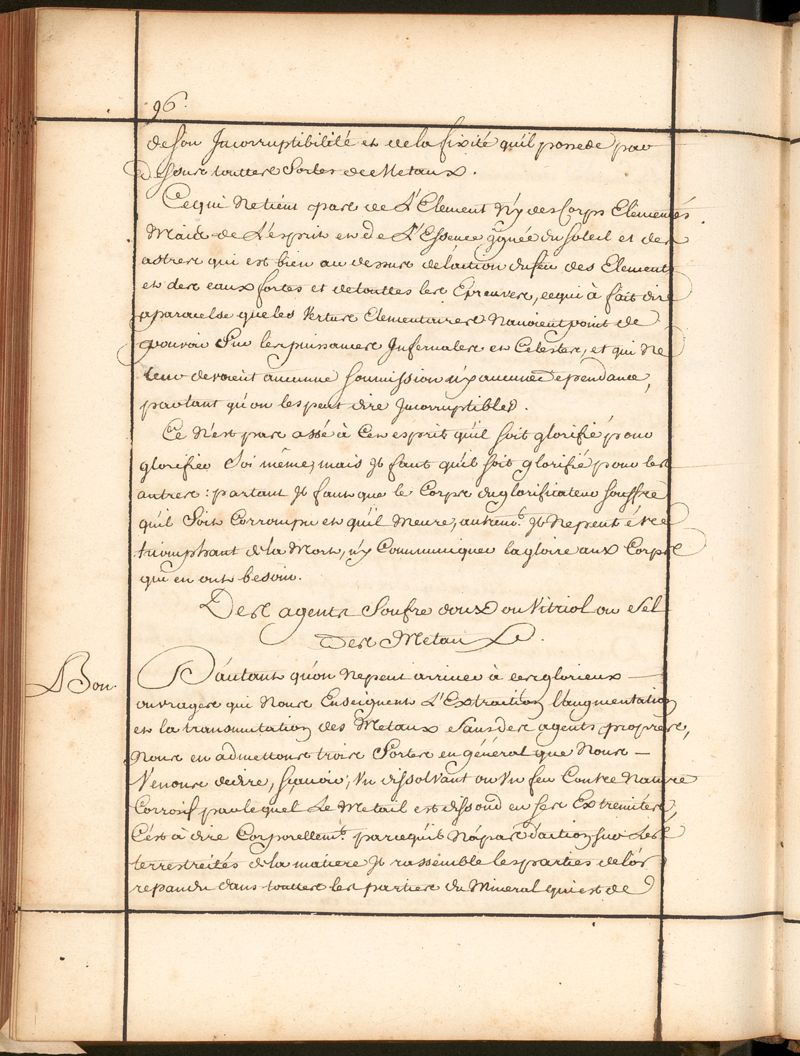 96.
de son Incorruptibilité et de la fixité qu'il possede par
Dessus touttes Sortes de Metaux.
Ce qui Ne tient pas de L'Element N'y des Corps Elementés
Mais de L'esprit et de L'Essence ignée du soleil et des
astres qui est bien au dessus de laction du feu des Element
et des eaux fortes et de touttes les Epreuves, ce qui à fait dire
a paracelse que les Vertus Elementaires Navoient point de
pouvoir Sur les puissances Infernales et Celestes, et qui Ne
leur devoient aucunne soumission n'y aucunne Dependance,
partant qu'on les peut dire Incorruptibles.
Ce N'est pas assé à Cet esprit qu'il soit glorifié pour
glorifier Soi même, mais Il faut qu'il soit glorifié pour les
autres: partant Il faut que le Corps du glorificateur souffre
qu'il Soit Corrompu et qu'il Meure, autremt. Il Ne peut être
triomphant de la Mort, n'y Communiquer la gloire aux Corps
qui en ont besoin.
Des agents Soufre doux ou Vitriol ou Sel
des Metaux.
Bon.
D'autant qu'on Ne peut arriver à ces glorieux
ouvrages qui Nous Enseignent L'Extraction l'augmentation
et la transmutation des Metaux sans des agents propres,
Nous en admettons trois Sortes en général que Nous
Venons de dire, sçavoir; Un dissolvant ou Un feu Contre Nature
Corrosif par lequel Le Metail est dissoud en ses Extremités,
C'est à dire Corporellemt. parcequ'il N'a pas d'action sur Les
terrestreités de la matiere Il rassemble les parties de l'or
repandu dans touttes les parties du Mineral qui est de